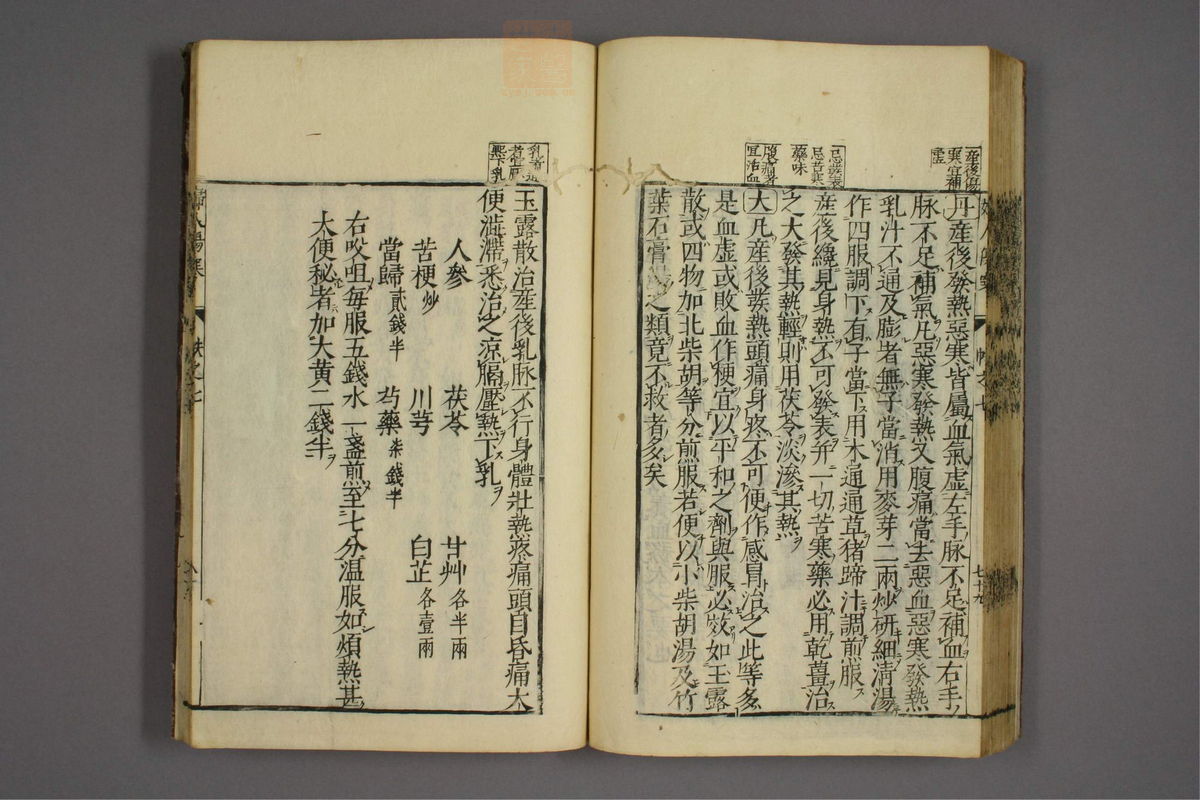 産後傷
寒宜補
虚
丹産後發熱惡寒皆屬血氣虚左手脉不足補血右手
脉不足補氣凡惡寒發熱又腹痛當去惡血惡寒發熱
乳汁不通及膨者無子當消用麥芽二兩炒研細清湯
作四服調下有子當下用木通通草猪蹄汁調煎服
忌發表
忌苦寒
藥味
産後纔見身熱不可發表并一切苦寒藥必用乾薑治
之大發其熱輕則用茯苓淡滲其熱
腹痛者
宜治血
大凡産後發熱頭痛身疼不可便作感冒治之此等多
是血虚或敗血作梗宜以平和之劑與服必效如玉露
散或四物加北柴胡等分煎服若便以小柴胡湯及竹
葉石膏湯之類竟不救者多矣
七十九
熱下乳
玉露散治産後乳脉不行身體壯熱疼痛頭目昏痛大
便澁滯悉治之凉膈壓熱下乳
人參 茯苓 甘艸各半兩
苦梗炒 川芎 白芷各壹兩
當歸貳錢半 芍藥柒錢半
右㕮咀毎服五錢水一盞煎至七分温服如煩熱甚
大便秘者加大黄二錢半